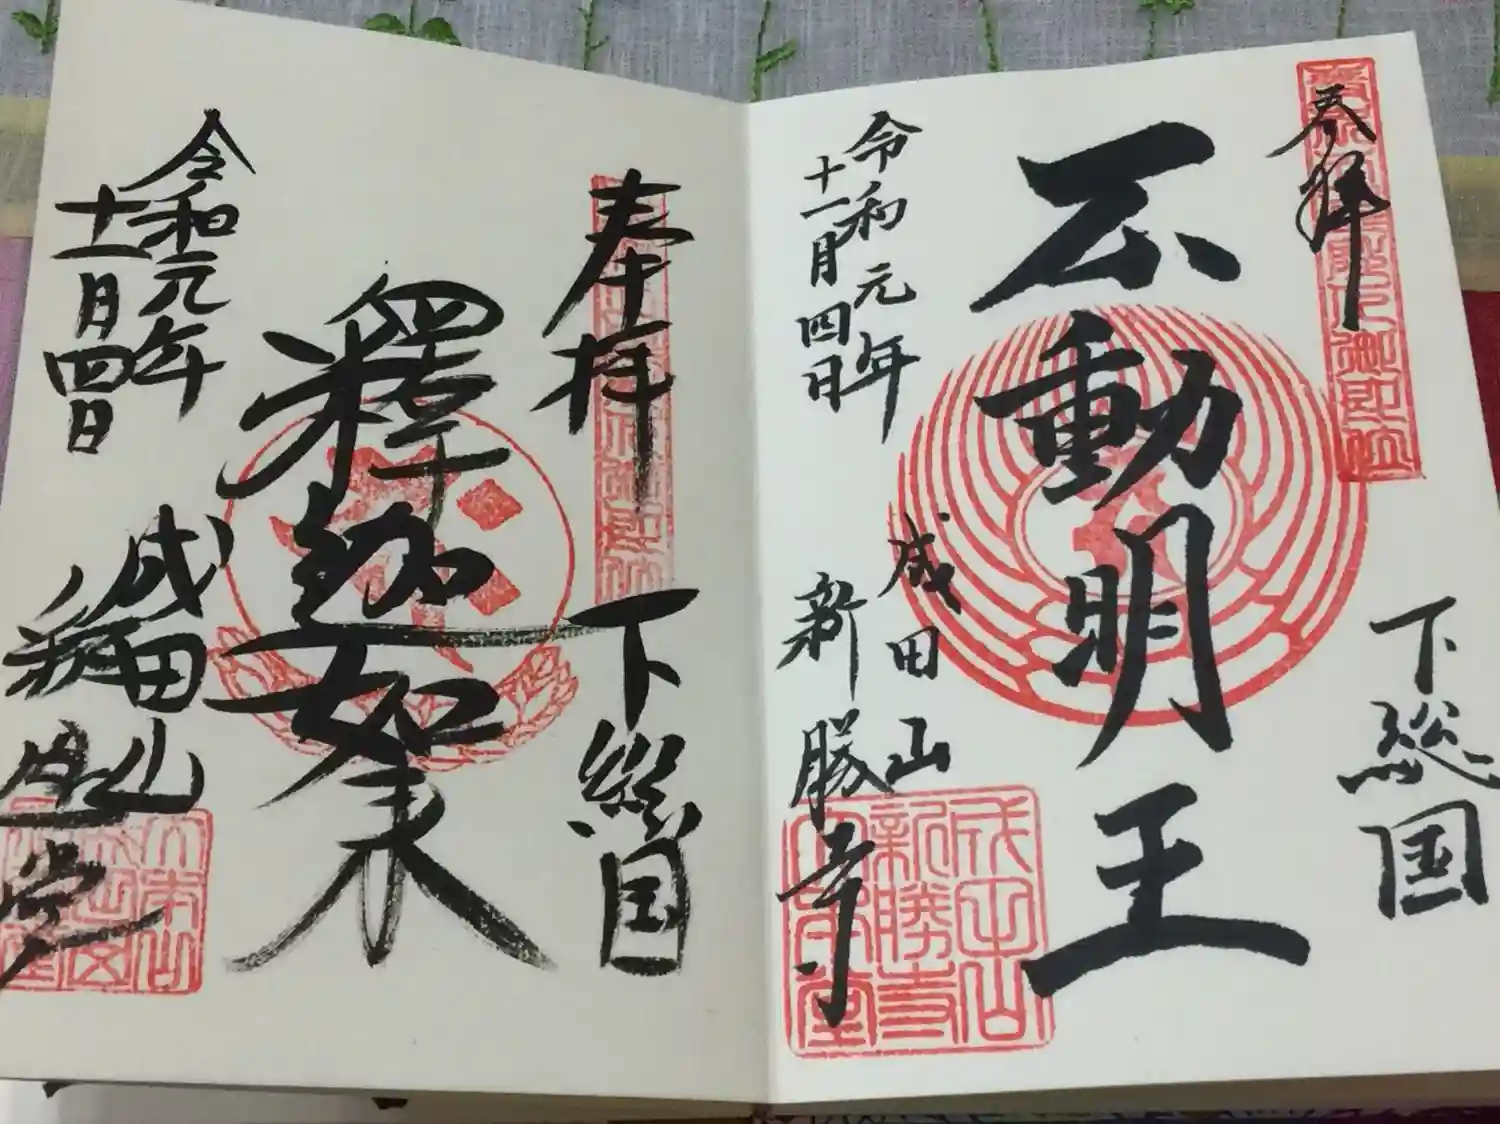 奉拝
下総国
不動明王
令和元年
十一月四日
成田山
新勝寺
成田山
新勝寺
奉拝
下総国
釋迦如来
令和元年
十一月四日
成田山
釋迦堂